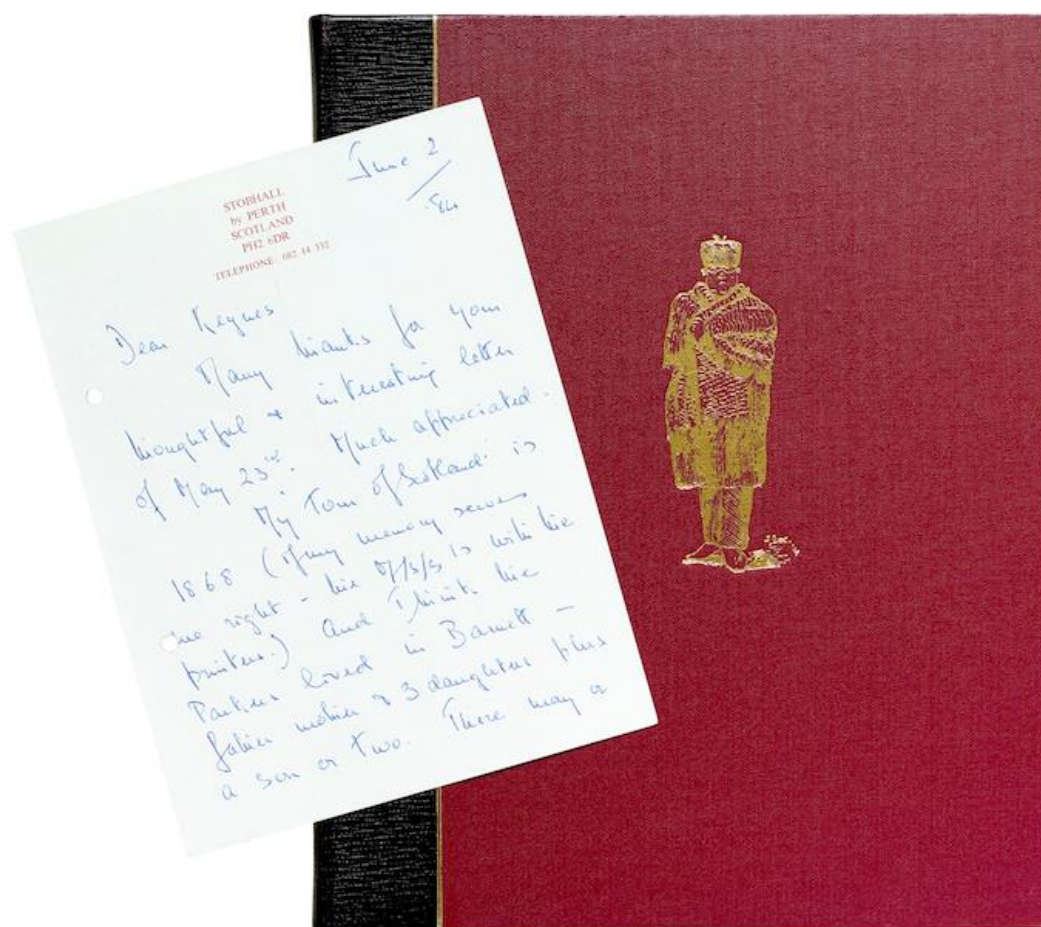 June 2
/
84
STOBHALL
by PERTH
SCOTLAND
PH2 6DR
TELEPHONE: 082 14 332
Dear Keynes
Many thanks for your
thoughtful & interesting letter
of May 23rd. Much appreciated.
My 'Tour of Scotland' is
1868 (if my memory serves
me right - the M/S/S is with the
printers.) And I think the
Parkers lived in Barnett -
father mother & 3 daughters plus
a son or two. There may or